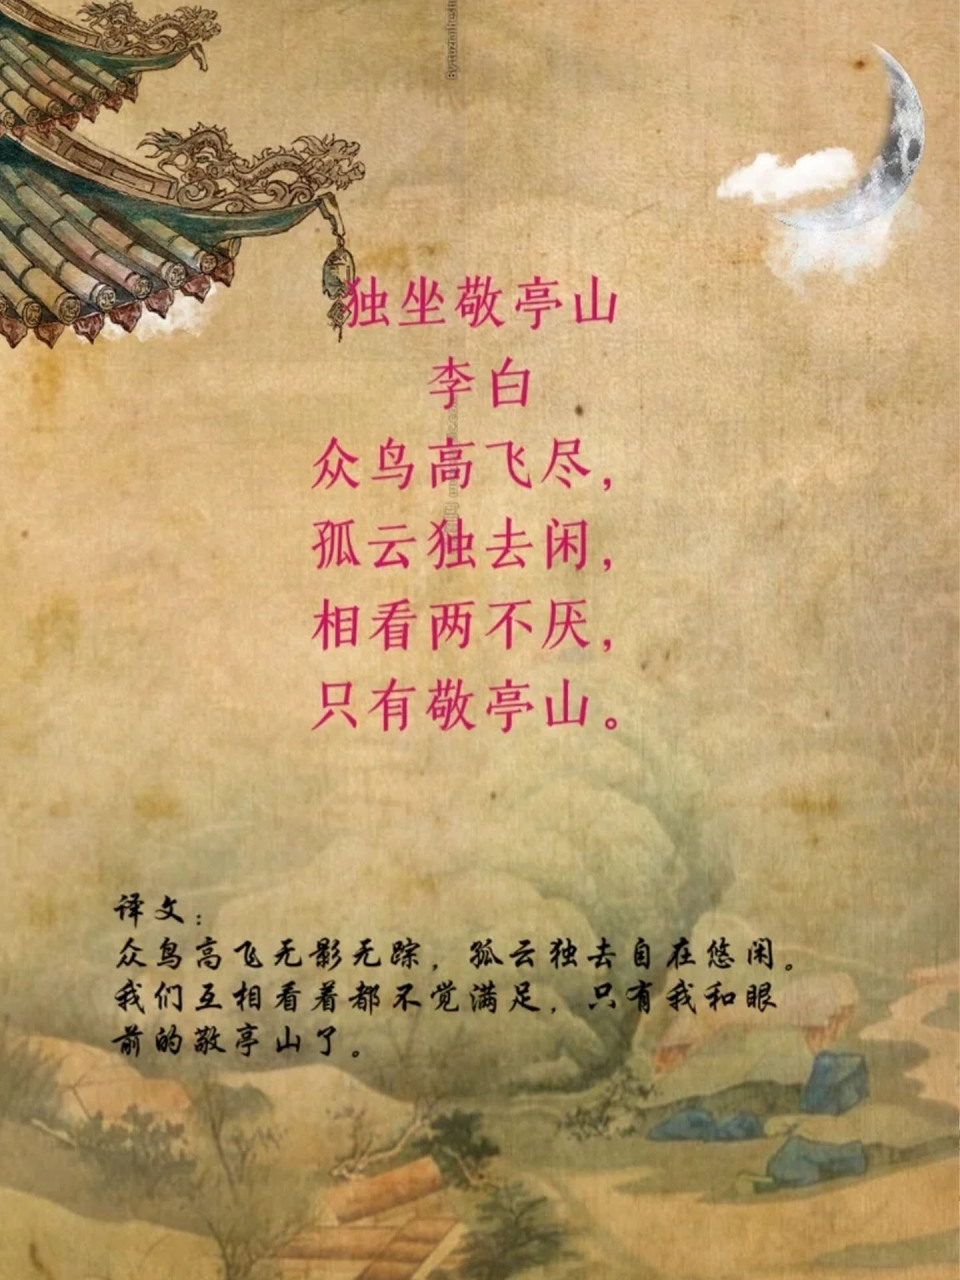 独坐敬亭山
李白
众鸟高飞尽，
孤云独去闲，
相看两不厌，
只有敬亭山。
译文：
众鸟高飞无影无踪，孤云独去自在悠闲。
我们互相看着都不觉满足，只有我和眼
前的敬亭山了。